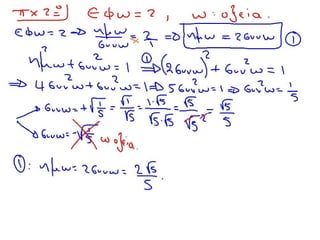 πχ 2ο) εφω=2, ω: οξεία.
εφω=2 ⇒ ημω/συνω = 2/1 ⇒ ημω = 2συνω ①
ημ²ω+συν²ω = 1 ①⇒ (2συνω)²+συν²ω = 1
⇒ 4συν²ω+συν²ω=1 ⇒ 5συν²ω=1 ⇒ συν²ω= 1/5
συνω=+√1/5 = √1/√5 = 1·√5/√5·√5 = √5/√5² = √5/5
συνω=-√1/5 ω οξεία.
①: ημω=2συνω= 2√5/5.